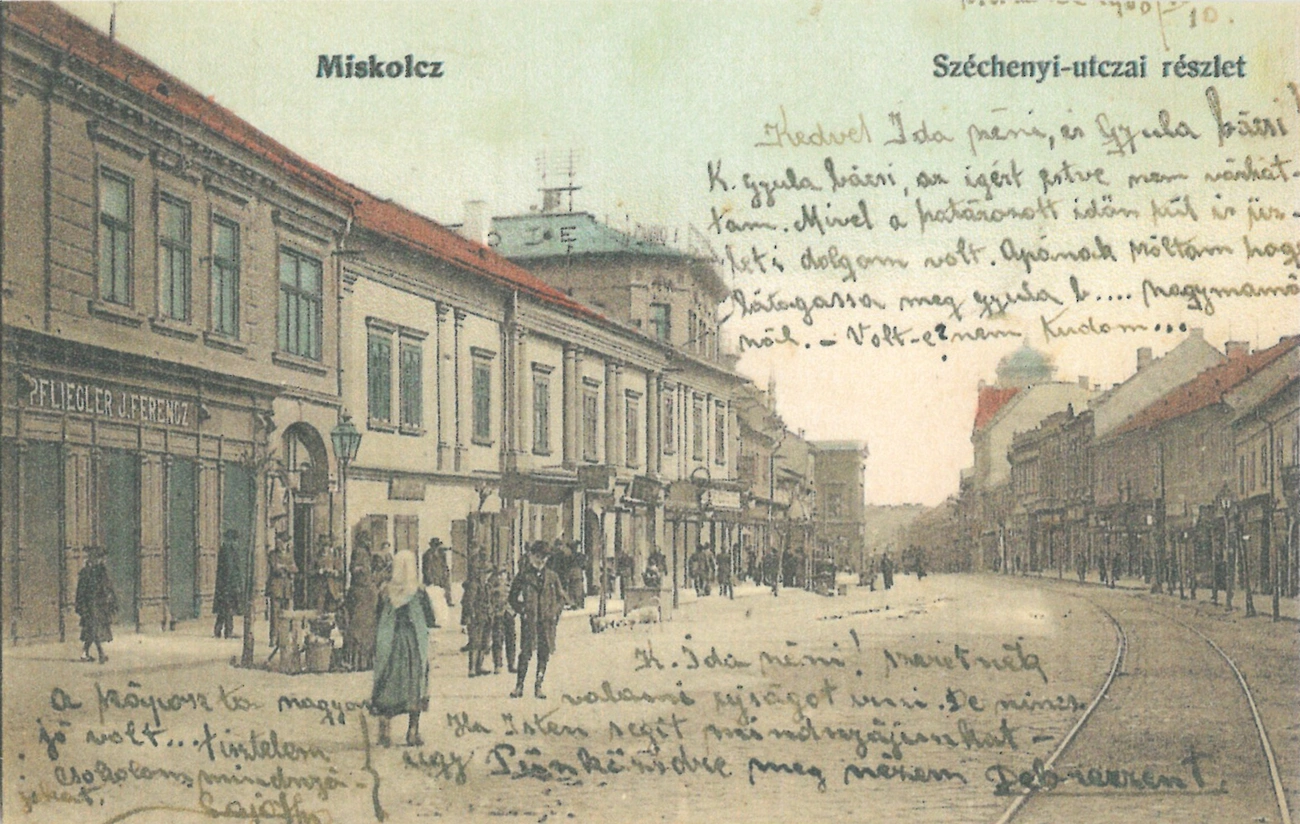 10.
Miskolcz
Széchenyi-utczai részlet
Kedvel Ida néni, és Gyula bácsi!
K. Gyula bácsi, az igért estve nem várhat-
tam. Mivel a határozott időn túl is üz-
leti dolgom volt. Apának szóltam hogy
látogassa meg gyula b.... nagymamá
nál. - Volt-e? nem tudom...
PFLIEGLER J. FERENCZ
K. Ida néni! szeretnék
valami ujságot irni. De nincs
Ha Isten segit mindnyájunkat -
ugy Pünkösdre meg nézem Debreczent.
A káposzta nagyon
jó volt... tisztelem
csokolom mindnyá-
jokat.
Lajos